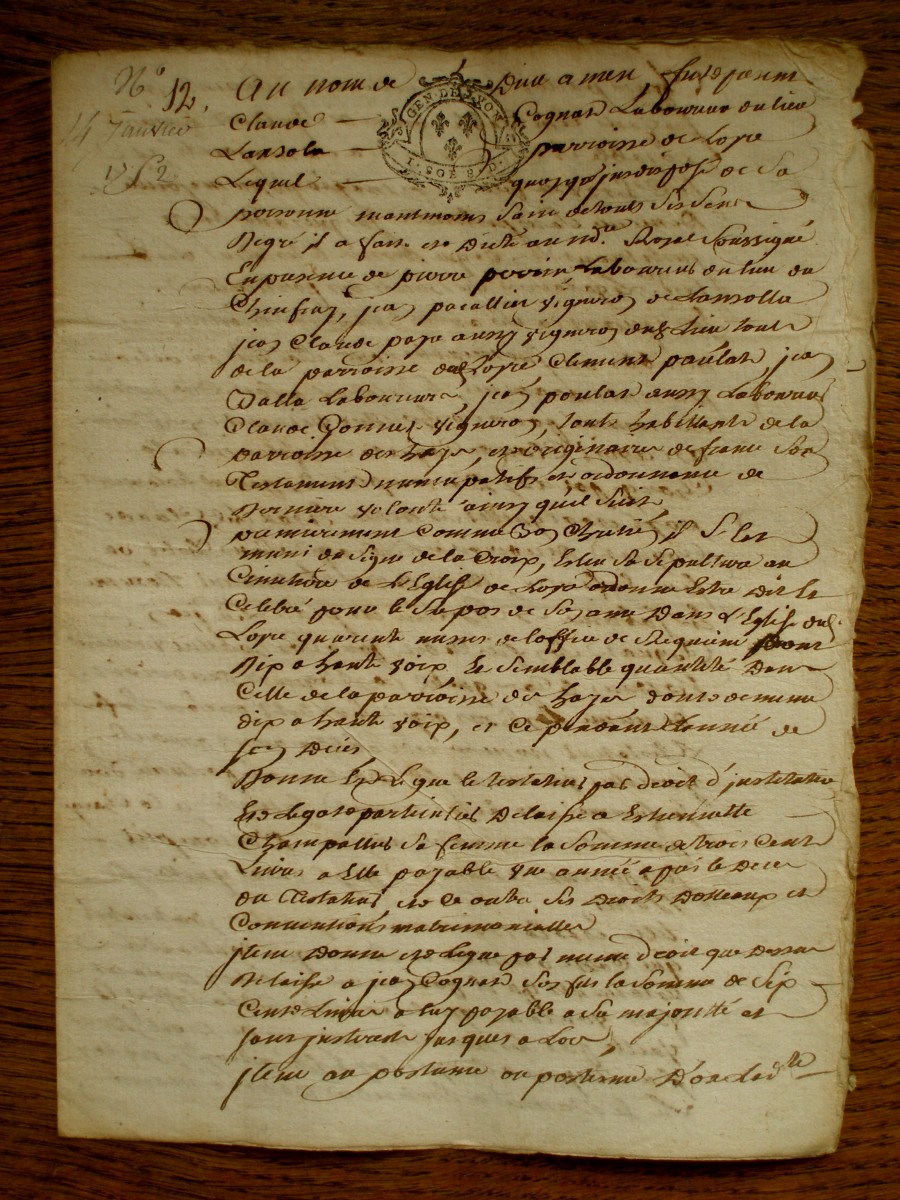 N° 12.
14 Janvier
Au nom de Dieu amen fut présent
Claude Cognat Laboureur du lieu
Lansola parroisse de Loyre
Lequel quoyqu'jndispose de Sa
GEN DE LYON
personne neantmoins Sain de tous Ses Sens
Degré il a fait et Dicté au nore Royal Soussigné
En presence de pierre perrin Laboureur du lieu du
jean pacallier vigneron de Lansolla
jean Claude paya aussy vigneron dud lieu tous
de la parroisse dud Loyre Clement paulat, jean
Dalla Laboureurs, jean poulat aussy Laboureur
Claude Bonnet vigneron, tous habittants de la
parroisse des hayes, et originaires de france Son
Testament nuncupatif et ordonnance de
Derniere volonté ainsy qu'il Suit
premierement comme bon Chretien il S'est
muni du Signe de la Croix, Esleu Sa Sepulture au
Cimetiere de L'Eglise de Loyre ordonne Estre Dit et
Celebré pour le Repos de Son ame Dans L'Eglise dud
Loyre quarente messes de l'office de Requiem dont
Dix a haute voix, Et Semblable quantité Dans
Celle de la parroisse des hayes dont de meme
dix a haute voix, et ce pendant L'année de
son Deces
Donne Et Legue le testateur par droit d'jnstitution
Et Legat particulier Delaisse a Estiennette
Champallier Sa femme la Somme de trois Cent
Livres a Elle payable une année apres le Deces
du Testateur et ce outre Ses Droits Dotteaux et
Conventions matrimonialles
jtem Donne et Legue par meme droit que Dessus
Delaisse a jean Cognat Son fils la Somme de Six
Cents Livres a luy payable a Sa majorité et
sans jnterest jusques a Lors
jtem au postume ou postume D'on Lad